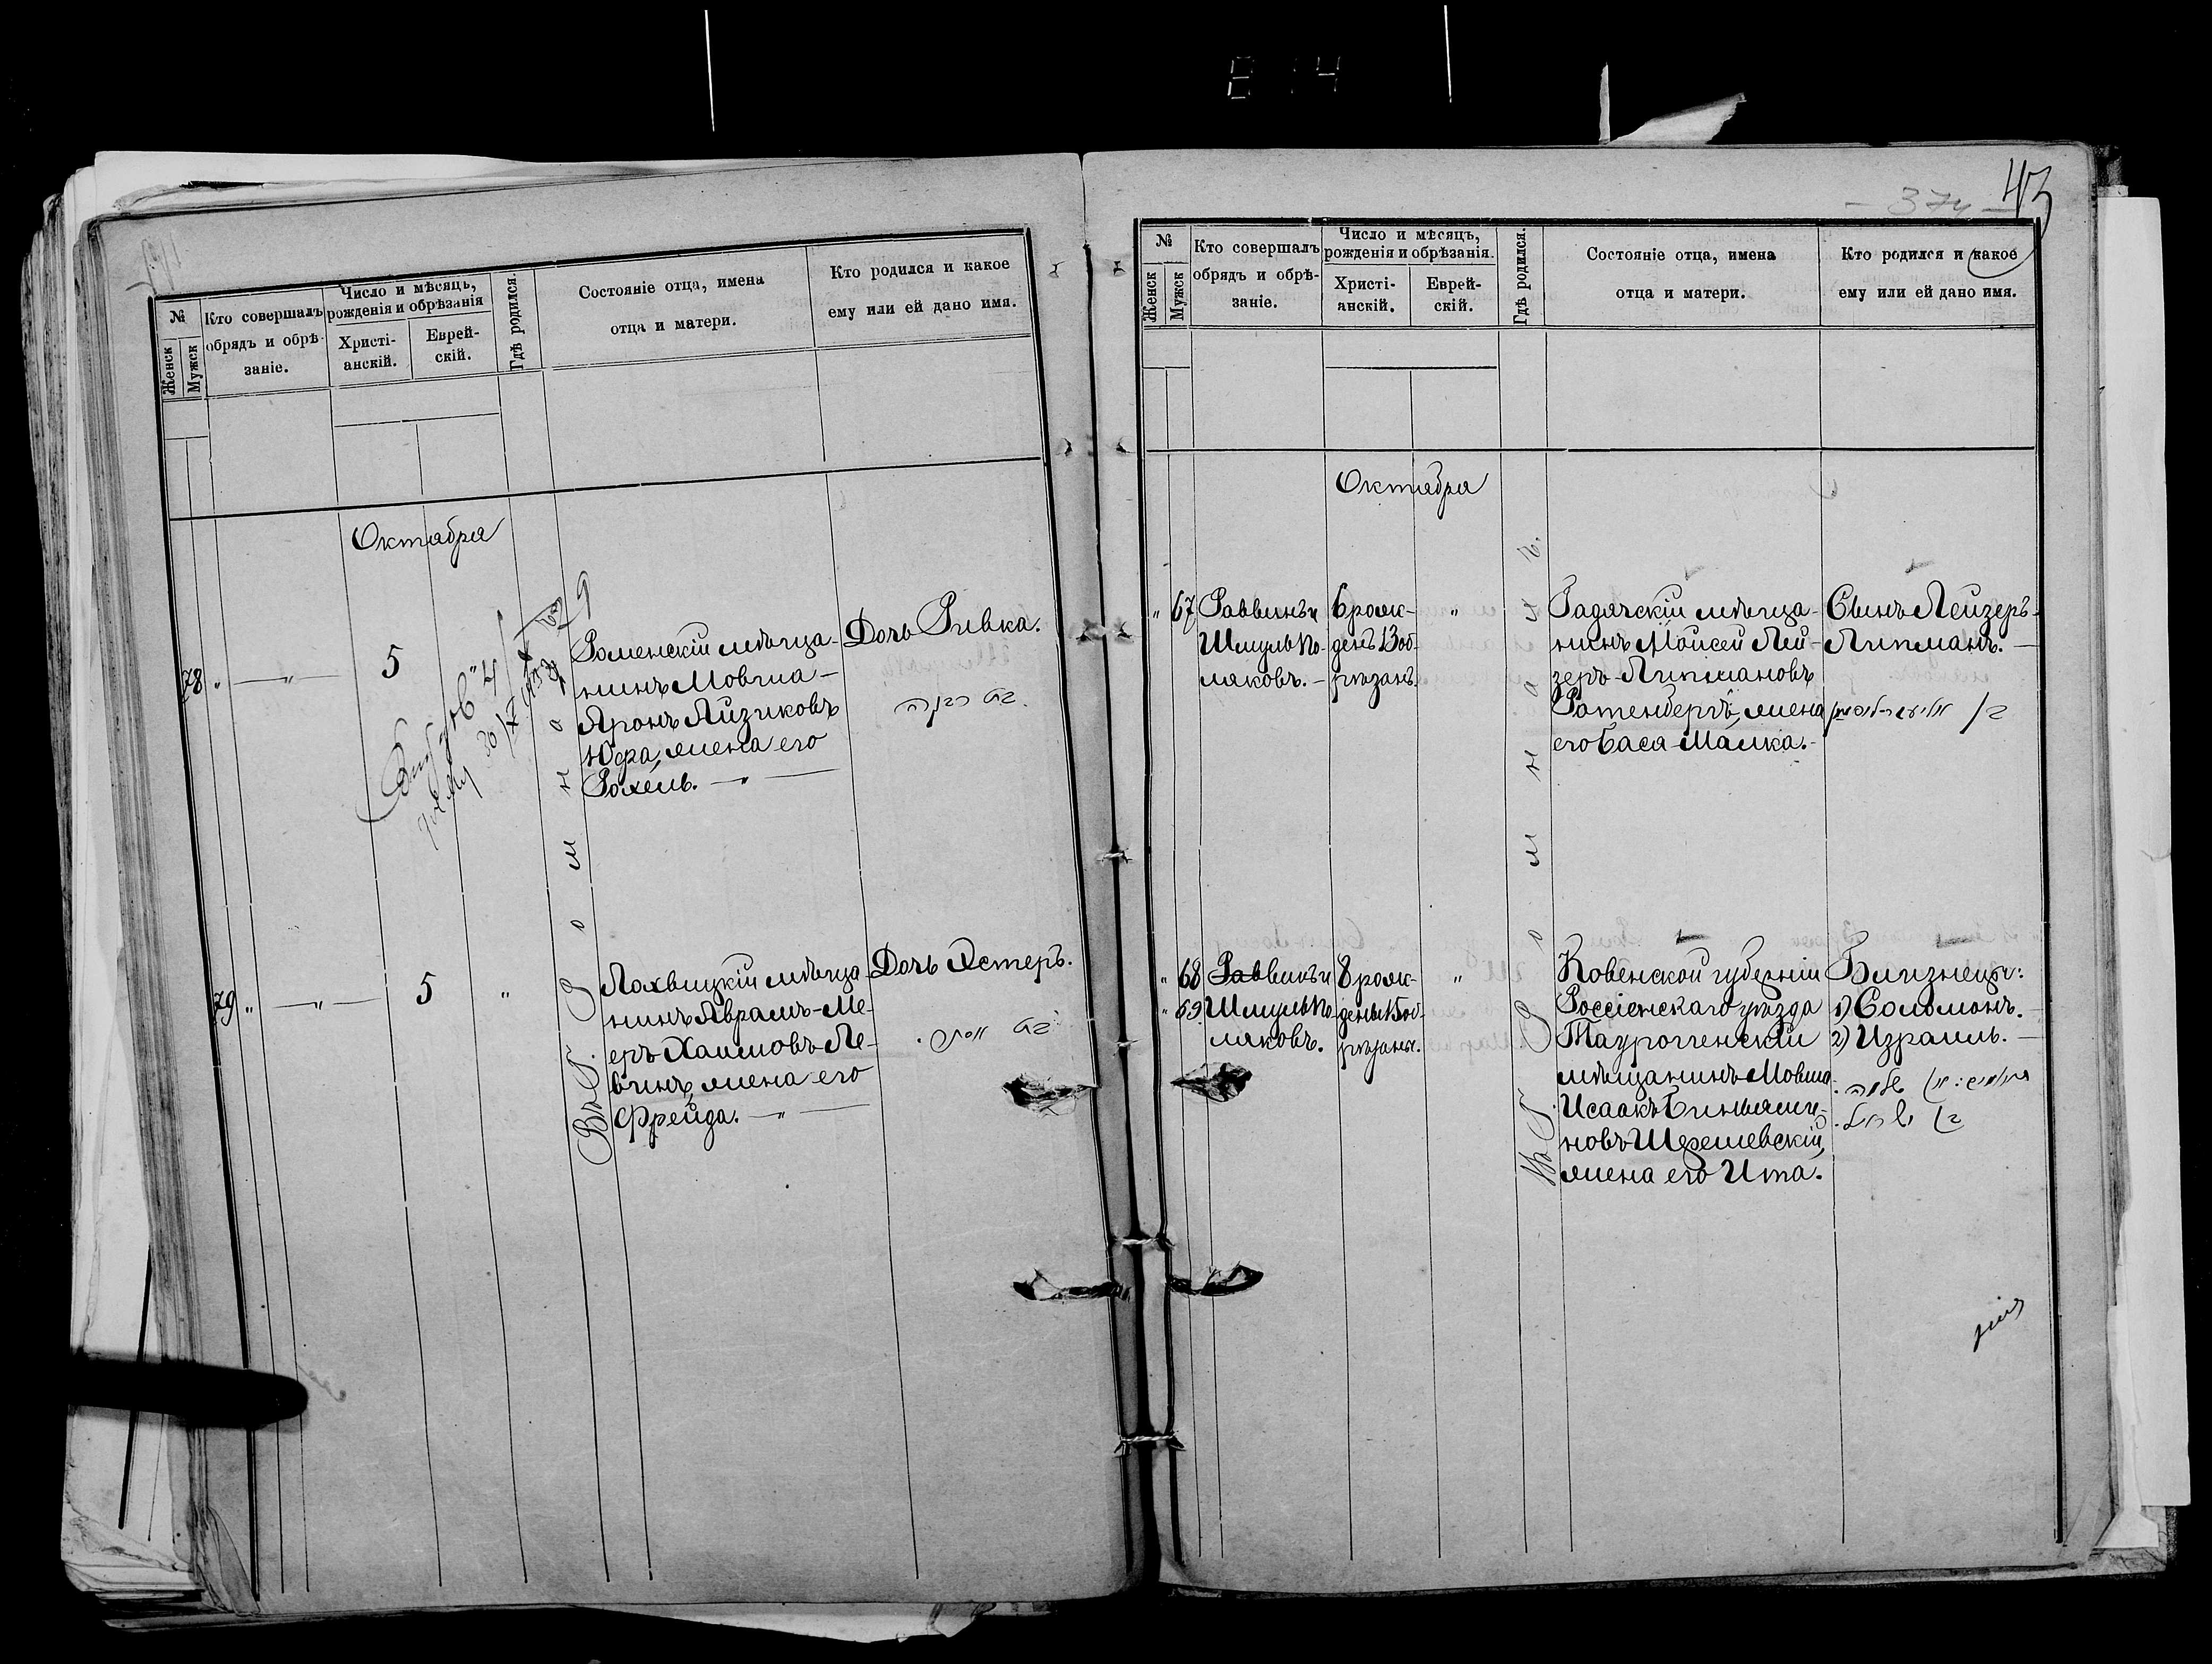 814
43
374
№
Женск
Мужск
Кто совершалъ
обрядъ и обрѣ-
заніе.
Число и мѣсяцъ,
рожденія и обрѣзанія
Христі-
анскій.
Еврей-
скій.
Гдѣ родился.
Состояніе отца, имена
отца и матери.
Кто родился и какое
ему или ей дано имя.
Октября
78
"
—"—
5
"
Роменскій мѣща-
нинъ Мовша-
Аронъ Айзиковъ
Юфа, жена его
Рохель. —"—
Дочь Ривка.
בת רבקה
79
"
—"—
5
"
Лохвицкій мѣща-
нинъ Аврамъ-Ме-
еръ Хаимовъ Ле-
винъ, жена его
Фрейда. —"—
Дочь Эстеръ.
בת אסתר.
Въ г. Ромнахъ
№
Женск
Мужск
Кто совершалъ
обрядъ и обрѣ-
заніе.
Число и мѣсяцъ,
рожденія и обрѣзанія.
Христі-
анскій.
Еврей-
скій.
Гдѣ родился.
Состояніе отца, имена
отца и матери.
Кто родился и какое
ему или ей дано имя.
Октября
"
67
Раввинъ и
Шмуль По-
ляковъ. —
6 рож-
денъ 13 об-
рѣзанъ.
"
Гадячскій мѣща-
нинъ Мойсей Лей-
зеръ-Липмановъ
Ротенбергъ, жена
его Бася-Малка.-
Сынъ Лейзеръ-
Липманъ. —
בן אליעזר-ליפמאן
"
68
"
69
Раввинъ и
Шмуль По-
ляковъ.
8 рож-
дены 15 об-
рѣзаны.
"
Ковенской губерніи
Россіенскаго уѣзда
Таурогенскій
мѣщанинъ Мовша-
Исаакъ Биньями-
новъ Шерешевскій,
жена его Ита.
Близнецы:
1) Соломонъ.
2) Израиль. —
תאומים: בן שלמה.
בן ישראל.
Въ г. Ромнахъ.